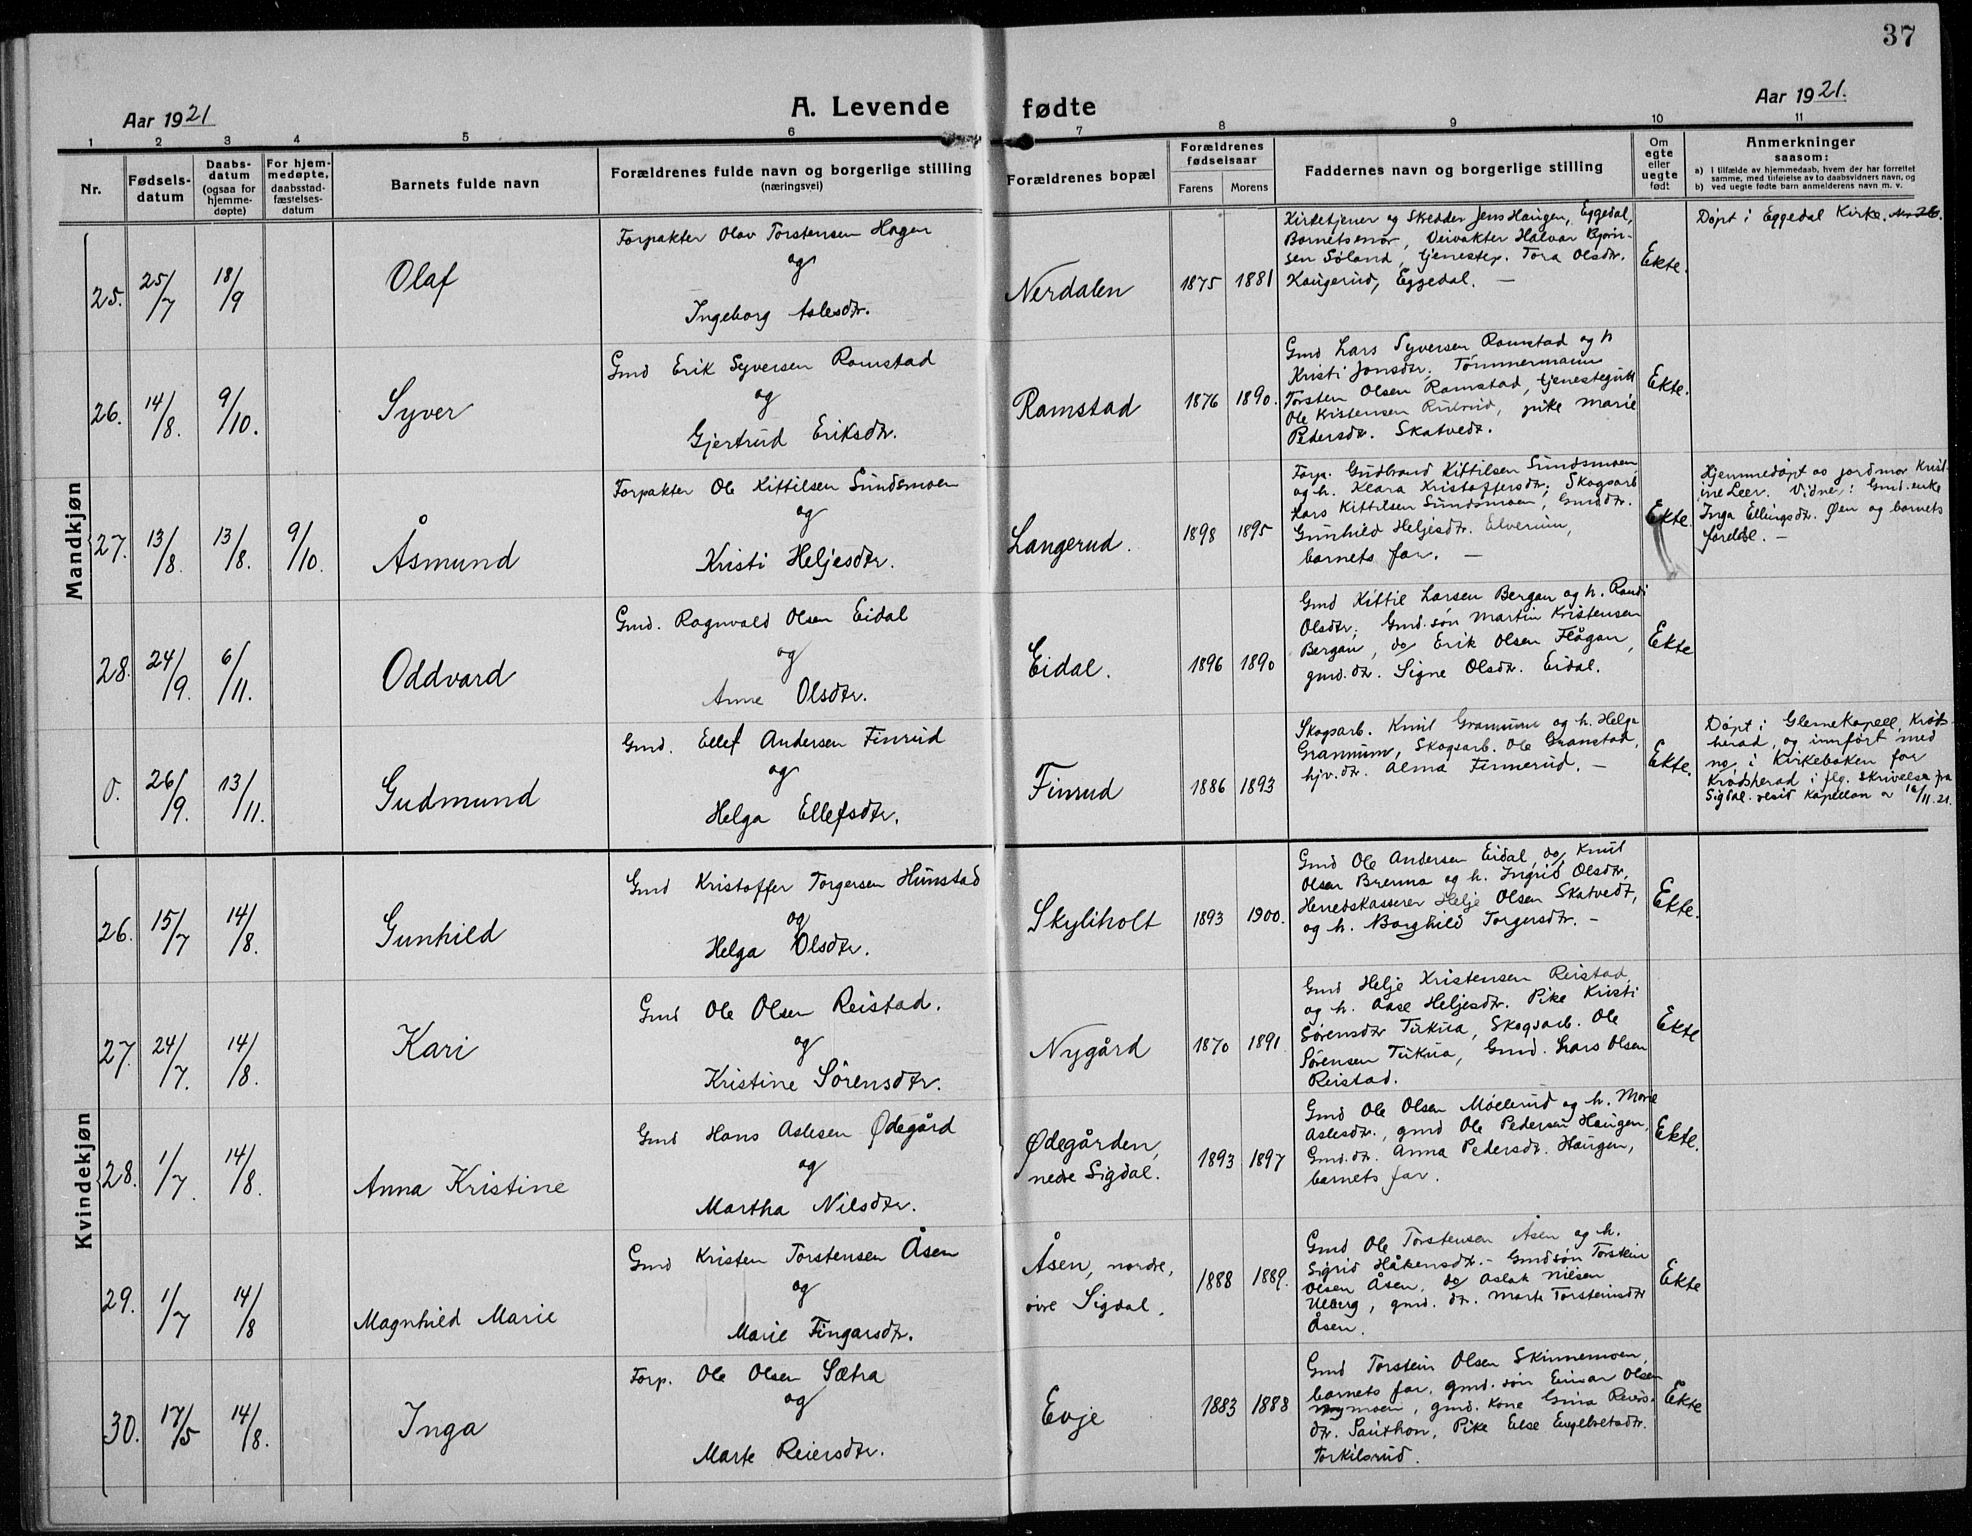 37
Aar 1921
A. Levende fødte
Aar 1921.
1 2 3 4 5 6 7 8 9 10 11
Nr.
Fødsels-
datum
Daabs-
datum
(ogsaa for
hjemme-
døpte)
For hjem-
medøpte,
daabsstad-
fæstelses-
datum
Barnets fulde navn
Forældrenes fulde navn og borgerlige stilling
(næringsvei)
Forældrenes bopæl
Forældrenes
fødselsaar
Farens
Morens
Faddernes navn og borgerlige stilling
Om
egte
eller
uegte
født
Anmerkninger
saasom:
a) i tilfælde av hjemmedaab, hvem der har forrettet
samme, med tilføielse av to daabsvidners navn, og
b) ved uegte fødte barn anmelderens navn m. v.
Mandkjøn
25. 25/7 18/9
Olaf
Forpakter Olav Torstensen Hagen
og
Ingeborg Aslesdtr.
Nerdalen
1875 1881
Kirketjener og Skredder Jens Haugen, Eggedal,
Barnets mor, Veivakter Halvar Bjørn-
sen Søland, tjenestep. Tora Olsdtr.
Haugerud, Eggedal. —
Ekte.
Døpt i Eggedal Kirke.
26. 14/8. 9/10.
Syver
Gmd Erik Syversen Ramstad
og
Gjertrud Eriksdtr.
Ramstad
1876 1890.
Gmd Lars Syversen Ramstad og h
Kristi Jonsdtr. Tømmermann
Torsten Olsen Ramstad, tjenestegutt
Ole Kistensen Rudrud, pike Marie
Pedersdtr. Skatvedt.
Ekte.
27. 13/8. 13/8. 9/10.
Åsmund
Forpakter Ole Kittilsen Sundsmoen
og
Kristi Heljesdtr.
Langerud.
1898 1895
Forp. Gudbrand Kittilsen Sundsmoen
og h. Klara Kristoffersdtr; Skogsarb
Lars Kittilsen Sundsmoen, Gmd.dtr.
Gunhild Heljesdtr. Elverum,
barnets far. —
Ekte.
Hjemmedøpt av jordmor Krist-
ine Leer. Vidner: Gmd.enke
Inga Ellingsdtr. Øen og barnets
foreldre. —
28. 24/9. 6/11.
Oddvard
Gmd. Ragnvald Olsen Eidal
og
Anne Olsdtr.
Eidal.
1896 1890
Gmd Kittil Larsen Bergan og h. Randi
Olsdtr, Gmd.søn Martin Kristensen
Bergan, do Erik Olsen Flågan,
gmd.dtr. Signe Olsdtr. Eidal.
Ekte
0. 26/9. 13/11.
Gudmund
Gmd. Ellef Andersen Finrud
og
Helga Ellefsdtr.
Finrud
1886 1893
Skogsarb. Knut Grammum og h. Helga
Grammum, Skogsarb. Ole Granstad,
hjv.dtr. Alma Finnerud. —
Ekte.
Døpt i Glesnekapell, Krøds-
herad, og innført med
no i Kirkeboken for
Krødsherad i flg. skrivelse fra
Sigdal resid Kapellan av 16/11.21.
Kvindekjøn
26. 15/7 14/8.
Gunhild
Gmd Kristoffer Torgersen Hunstad
og
Helga Olsdtr.
Skyliholt
1893 1900.
Gmd Ole Andersen Eidal, do Knut
Olsen Brenna og h. Ingrid Olsdtr,
Herredskasserer Helje Olsen Skatvedt,
og h. Borghild Torgersdtr. —
Ekte.
27. 24/7. 14/8.
Kari
Gmd Ole Olsen Reistad.
og
Kristine Sørensdtr.
Nygård
1870 1891
Gmd Helje Kristensen Reistad
og h. Aase Heljesdtr. Pike Kristi
Sørensdtr Tukua, Skogsarb. Ole
Sørensen Tukua, Gmd. Lars Olsen
Reistad.
Ekte
28. 1/7. 14/8.
Anna Kristine
Gmd Hans Aslesen Ødegård
og
Martha Nilsdtr.
Ødegården,
nedre Sigdal.
1893 1897
Gmd Ole Olsen Moelerud og h. Marie
Aslesdtr., gmd Ole Pedersen Haugen,
Gmd.dtr. Anna Pedersdtr. Haugen,
barnets far.
Ekte.
29. 1/7 14/8
Magnhild Marie
Gmd Kristen Torstensen Åsen
og
Marie Fingarsdtr.
Åsen, nordre,
øvre Sigdal.
1888 1889.
Gmd Ole Torstensen Åsen og h.
Sigrid Håkensdtr. – Gmdsøn Torstein
Olsen Åsen, do Aslak Nilsen
Ulberg, gmd. dtr. Marte Torsteinsdtr
Åsen.
Ekte
30. 17/5 14/8.
Inga
Forp. Ole Olsen Sætra
og
Marte Reiersdtr.
Evje
1883 1888
Gmd Torstein Olsen Skinnemoen,
barnets far, gmd. søn Einar Olsen
moen, gmd. Kone Gina Reiers-
dtr. Pike Else Engebretsdtr.
Torkilsrud.
Ekte